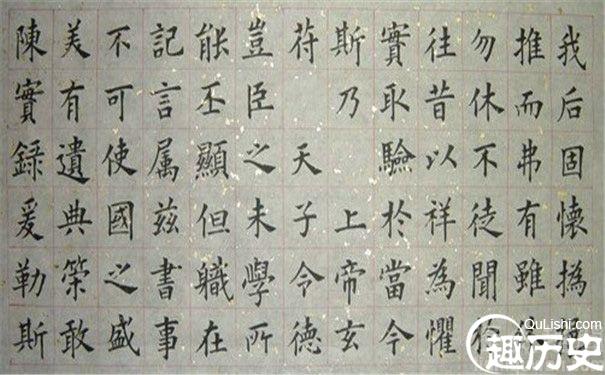 我后固懷撝
推而弗有雖
勿休不徒聞
往昔以祥為懼
實取驗於當今
斯乃 上帝玄
苻 天子令德
豈臣之末學所
能丕顯但職在
記言属茲書事
不可使國之盛
美有遺典策敢
陳實録爰勒斯
QuLishi.com
趣历史